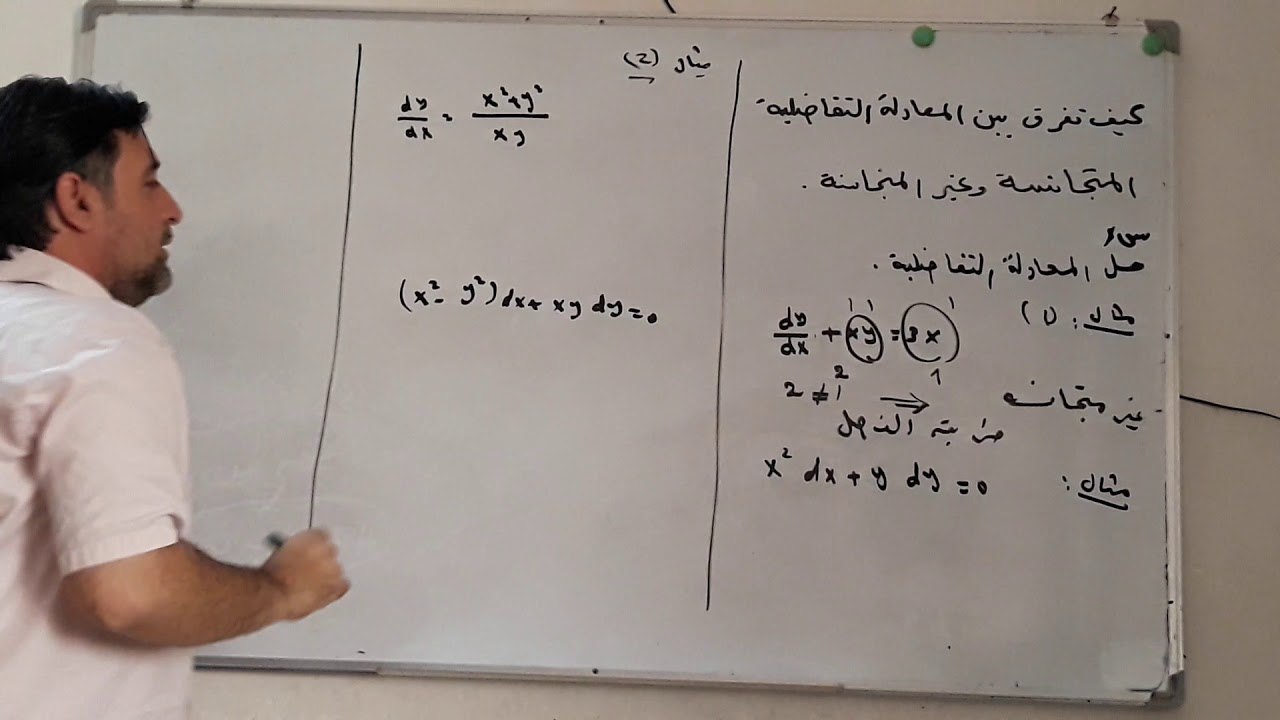 كيف تفرق بين المعادلة التفاضلية
المتجانسة وغير المتجانسة .
حل المعادلة التفاضلية .
مثال : (1
dy/dx + xy = 3x
1 1 1
2 1
2 ≠ 1 ⇒ غير متجانسه
مثال : x² dx + y dy = 0
مثال (2)
dy/dx = x²+y²/xy
(x² - y²) dx + xy dy = 0